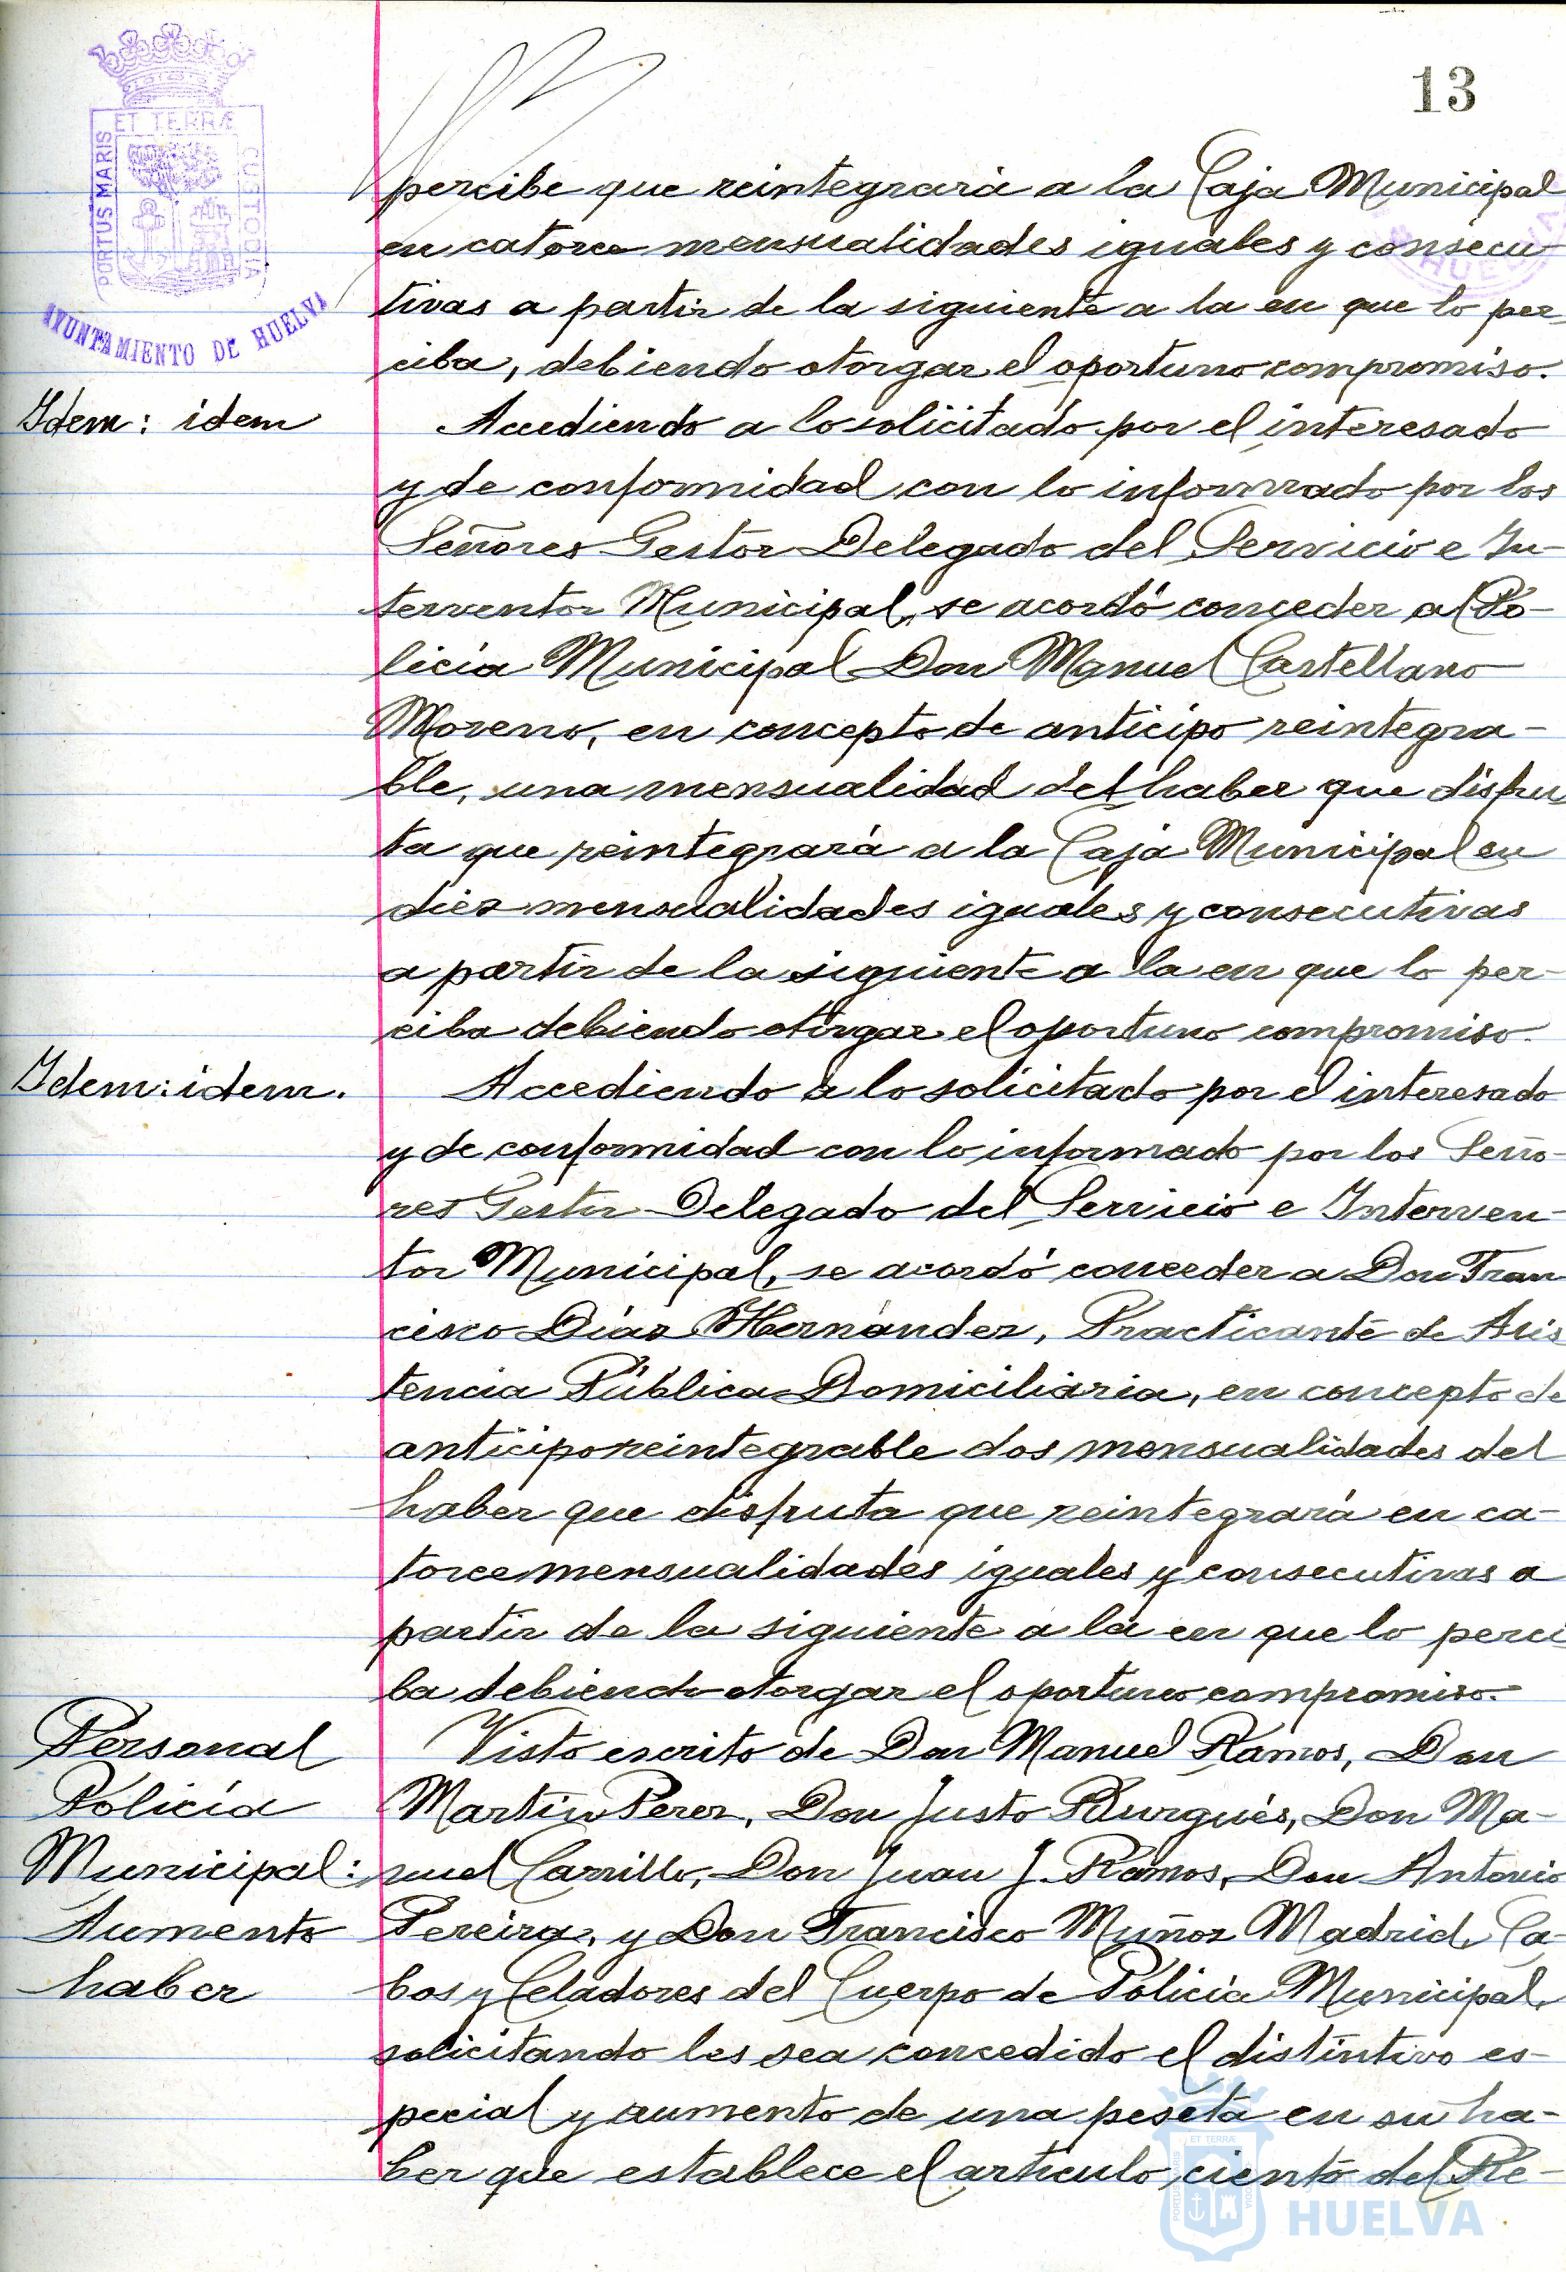 13
ET TERRÆ
PORTUS MARIS
CUSTODIA
AYUNTAMIENTO DE HUELVA
HUELVA
percibe que reintegrará a la Caja Municipal
en catorce mensualidades iguales y consecu-
tivas a partir de la siguiente a la en que lo per-
ciba, debiendo otorgar el oportuno compromiso.
Idem: idem
Accediendo a lo solicitado por el interesado
y de conformidad con lo informado por los
Señores Gestor Delegado del Servicio e In-
terventor Municipal, se acordó conceder al Po-
licia Municipal Don Manuel Castellano
Moreno, en concepto de anticipo reintegra-
ble, una mensualidad del haber que disfru
ta que reintegrará a la Caja Municipal en
diez mensualidades iguales y consecutivas
a partir de la siguiente a la en que lo per-
ciba debiendo otorgar el oportuno compromiso.
Idem: idem.
Accediendo a lo solicitado por el interesado
y de conformidad con lo informado por los Seño-
res Gestor Delegado del Servicio e Interven-
tor Municipal, se acordó conceder a Don Fran
cisco Díaz Hernández, Practicante de Asis
tencia Pública Domiciliaria, en concepto de
anticipo reintegrable dos mensualidades del
haber que disfruta que reintegrará en ca-
torce mensualidades iguales y consecutivas a
partir de la siguiente a la en que lo perci
ba debiendo otorgar el oportuno compromiso.
Personal
Policía
Municipal:
Aumento
haber
Visto escrito de Don Manuel Ramos, Don
Martín Perez, Don Justo Burgués, Don Ma-
nuel Carrillo, Don Juan J. Ramos, Don Antonio
Pereira, y Don Francisco Muñoz Madrid, Ca-
bos y Celadores del Cuerpo de Policia Municipal,
solicitando les sea concedido el distintivo es-
pecial y aumento de una peseta en su ha-
ber que establece el artículo ciento del Re-
ET TERRÆ
PORTUS MARIS
CUSTODIA
HUELVA